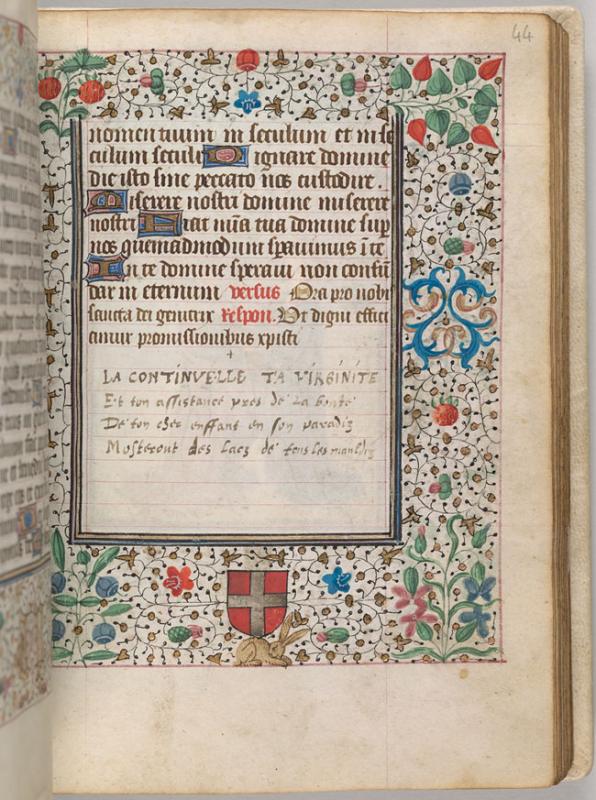 44
nomen tuum in seculum et in se
culum seculi Dignare domine
die isto sine peccato nos custodire.
Miserere nostri domine miserere
nostri Fiat mĩa tua domine sup
nos quemadmodum sperauimus ĩ te
In te domine speraui non confũ
dar in eternum versus Ora pro nobis
sancta dei genitrix Respon. Ut digni effici
amur promissionibus xpisti
LA CONTINVELLE TA VIRGINITE
Et ton assistance pres de La bonte
De ton cher enffant en son paradiz
Mosteront des Lacz de tous les mauldiz